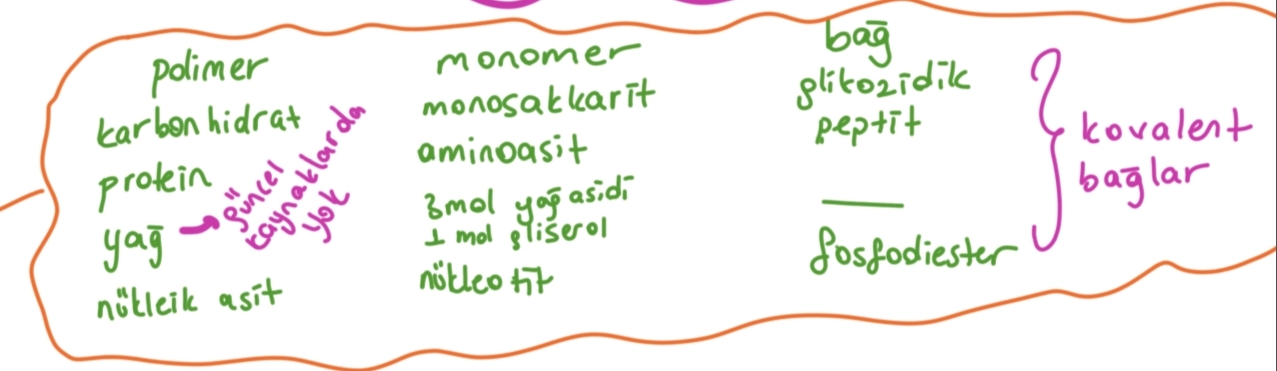 polimer
karbonhidrat
protein
yağ
nükleik asit
güncel
kaynaklarda
yok
monomer
monosakkarit
aminoasit
3mol yağ asidi
1 mol gliserol
nükleotit
bağ
glikozidik
peptit
fosfodiester
kovalent
bağlar